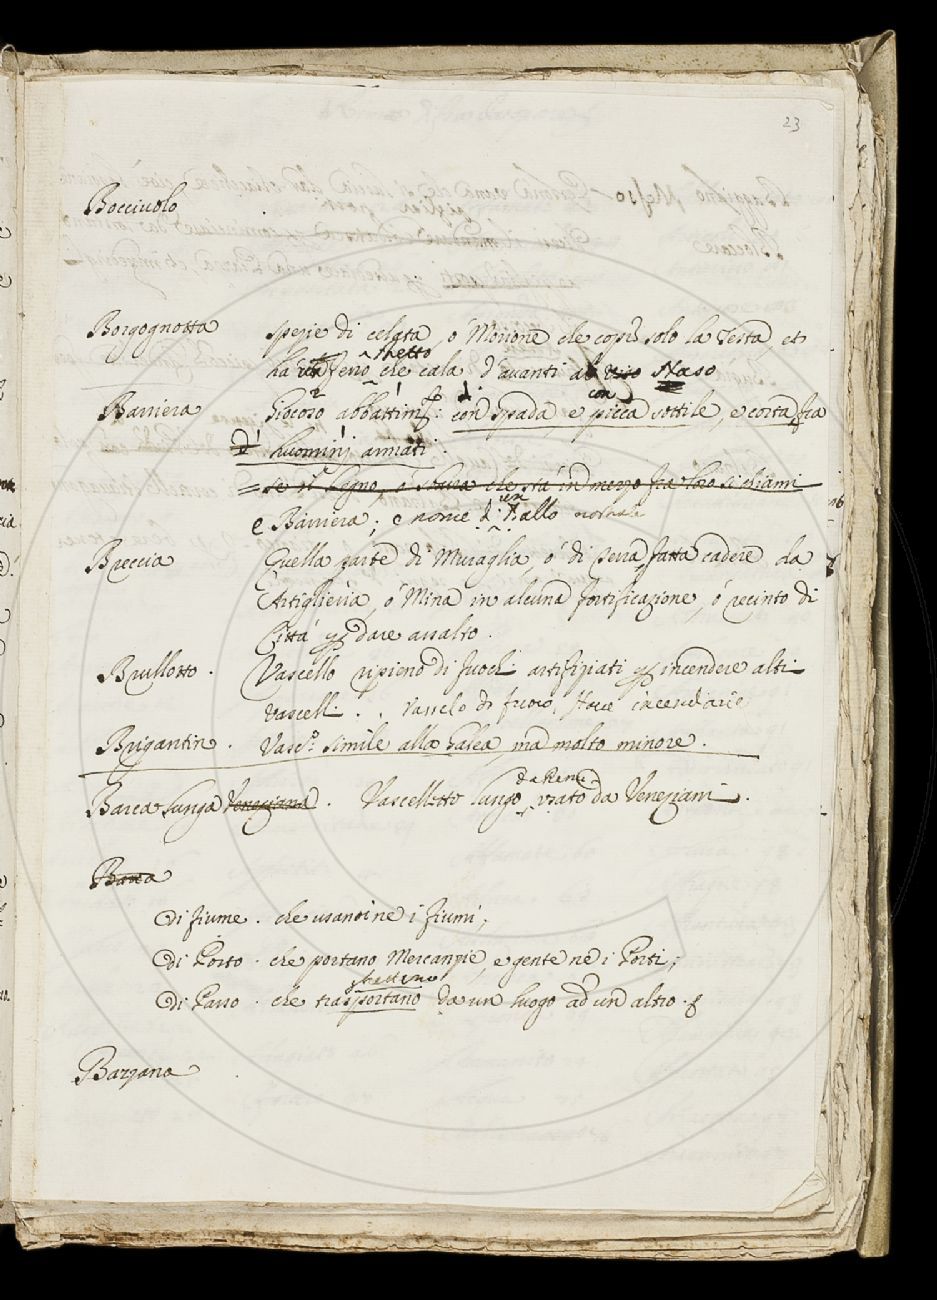 23
Bocciuolo
Borgognotta spezie di celata, ó Morione che copre solo la Testa, et
ha ferro che cala d'avanti al viso Naso
Barriera Giocoso abbattim.to con
con spada e picca sottile, e corta fra
d' huominj armati.
= se il legno, ó che stá in mezzo fra loro si chiami
e Barriera; e nome d' un Ballo
Breccia Quella parte di Muraglia, ó di Terra fatta cadere da
Artiglieria, ó Mina in alcuna fortificazione, ó recinto di
Cittá per dare assalto.
Brullotto. Vascello ripieno di fuochi artifiziati per incendere altri
vascelli. Vascelo di fuoco, Nave incendiaria
Brigantin. Vasc.o simile alla Galea, ma molto minore.
da Remi
Barca Lunga Veneziana. Vascelletto lungo usato da Veneziani.
Barca
di fiume. che usano ne i fiumi;
di Porto. che portano Mercanzie, e gente ne i Porti;
di Passo. che trasportano da un luogo ad un altro.
Barzana